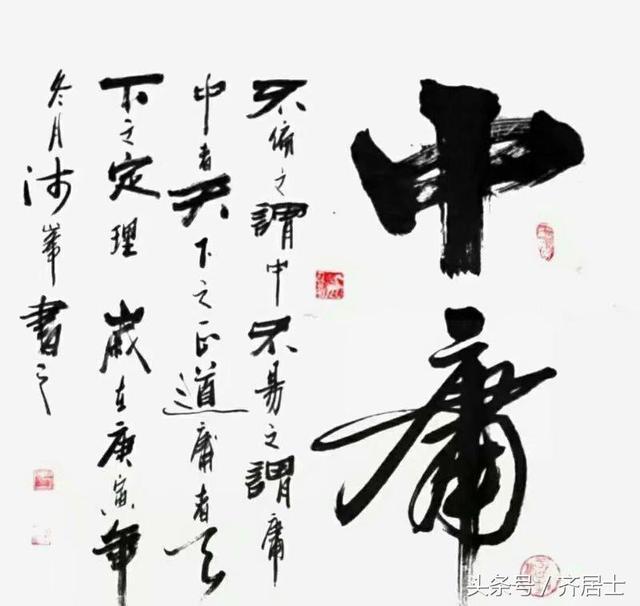 中庸
不偏之謂中不易之謂庸
中者天下之正道庸者天
下之定理 歲在庚寅年
冬月沛峯書之
头条号 / 齐居士